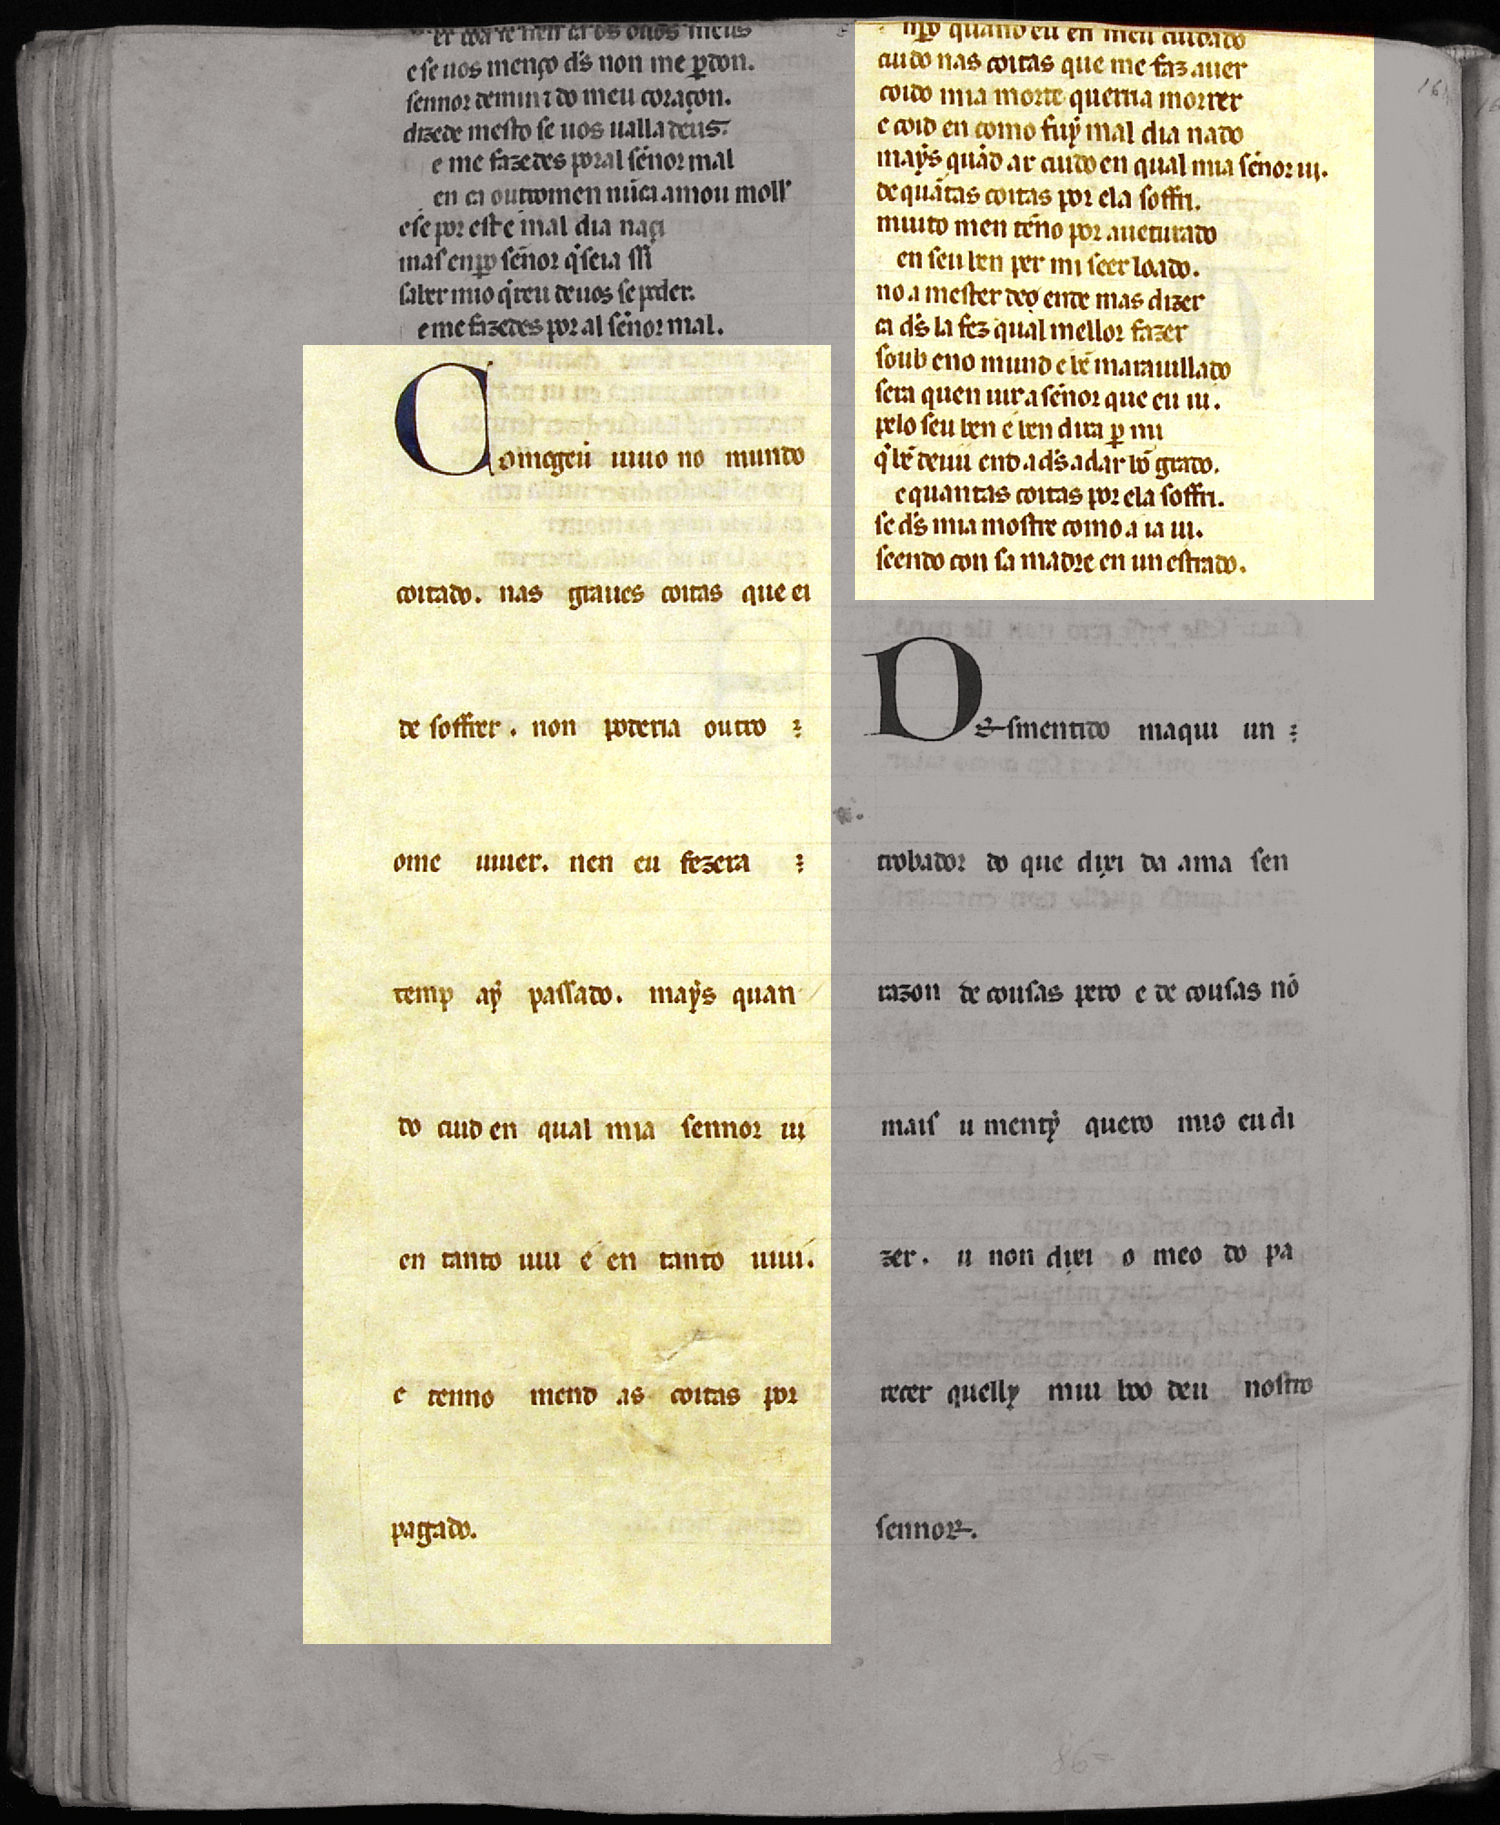 e se uos menço dſ̃ non me ꝑdon.
ſennor de min ⁊ do meu coraçon.
dizede meſto ſe uos ualla deus.
e me fazedes por al ſen̄or mal
en ca outromen nũca amou moll'
e ſe por eſt e mal dia naçi
maſ enpo ſen̄or q̇ſeia aſſi
ſaber mio q̇rreu de uos ſe poder.
e me fazedes por al ſen̄or mal.
Comogeu uiuo no mundo
coitado. nas graues coitas que ei
de ſoffrer. non poderia outro
ome uiuer. nen eu fezera
temp aẏ paſſado. maẏs quan
do cuid en qual mia ſennor ui
en tanto uiu e en tanto uiui.
e tenno mend as coitas por
pagado.
npo quand eu en meu cuidado
cuido nas coitas que me faz auer
coido mia morte querria morrer
e coid en como fuẏ mal dia nado
maẏs quãd ar cuido en qual mia ſen̄or ui.
de quãtas coitas por ela ſoffri.
muito men tẽno por auẽturado
en ſeu ben per mi ſeer loado.
no a meſter deo ende mas dizer
ca dſ̃ la fez qual mellor fazer
ſoub eno mund e bẽ marauillado
ſera quen uira ſen̄or que eu ui.
pelo ſeu ben e ben dira ꝑ mi
q̇ bẽ deuii end a dſ̃ a dar bõ grado.
e quantas coitas por ela ſoffri.
ſe dſ̃ mia moſtre como a ia ui.
ſeendo con ſa madre en un eſtrado.
Deſmentido maqui un
trobador do que dixi da ama ſen
razon de couſas pero e de couſas nõ
maiſ u mentẏ quero mio eu di
zer. u non dixi o meo do pa
recer quellẏ mui boo deu noſtro
ſennor.